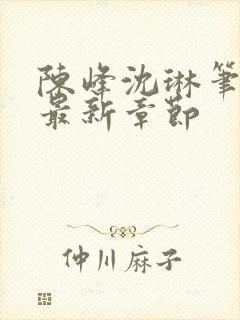 陳峰沈琳筆
最新章節
仲川麻子